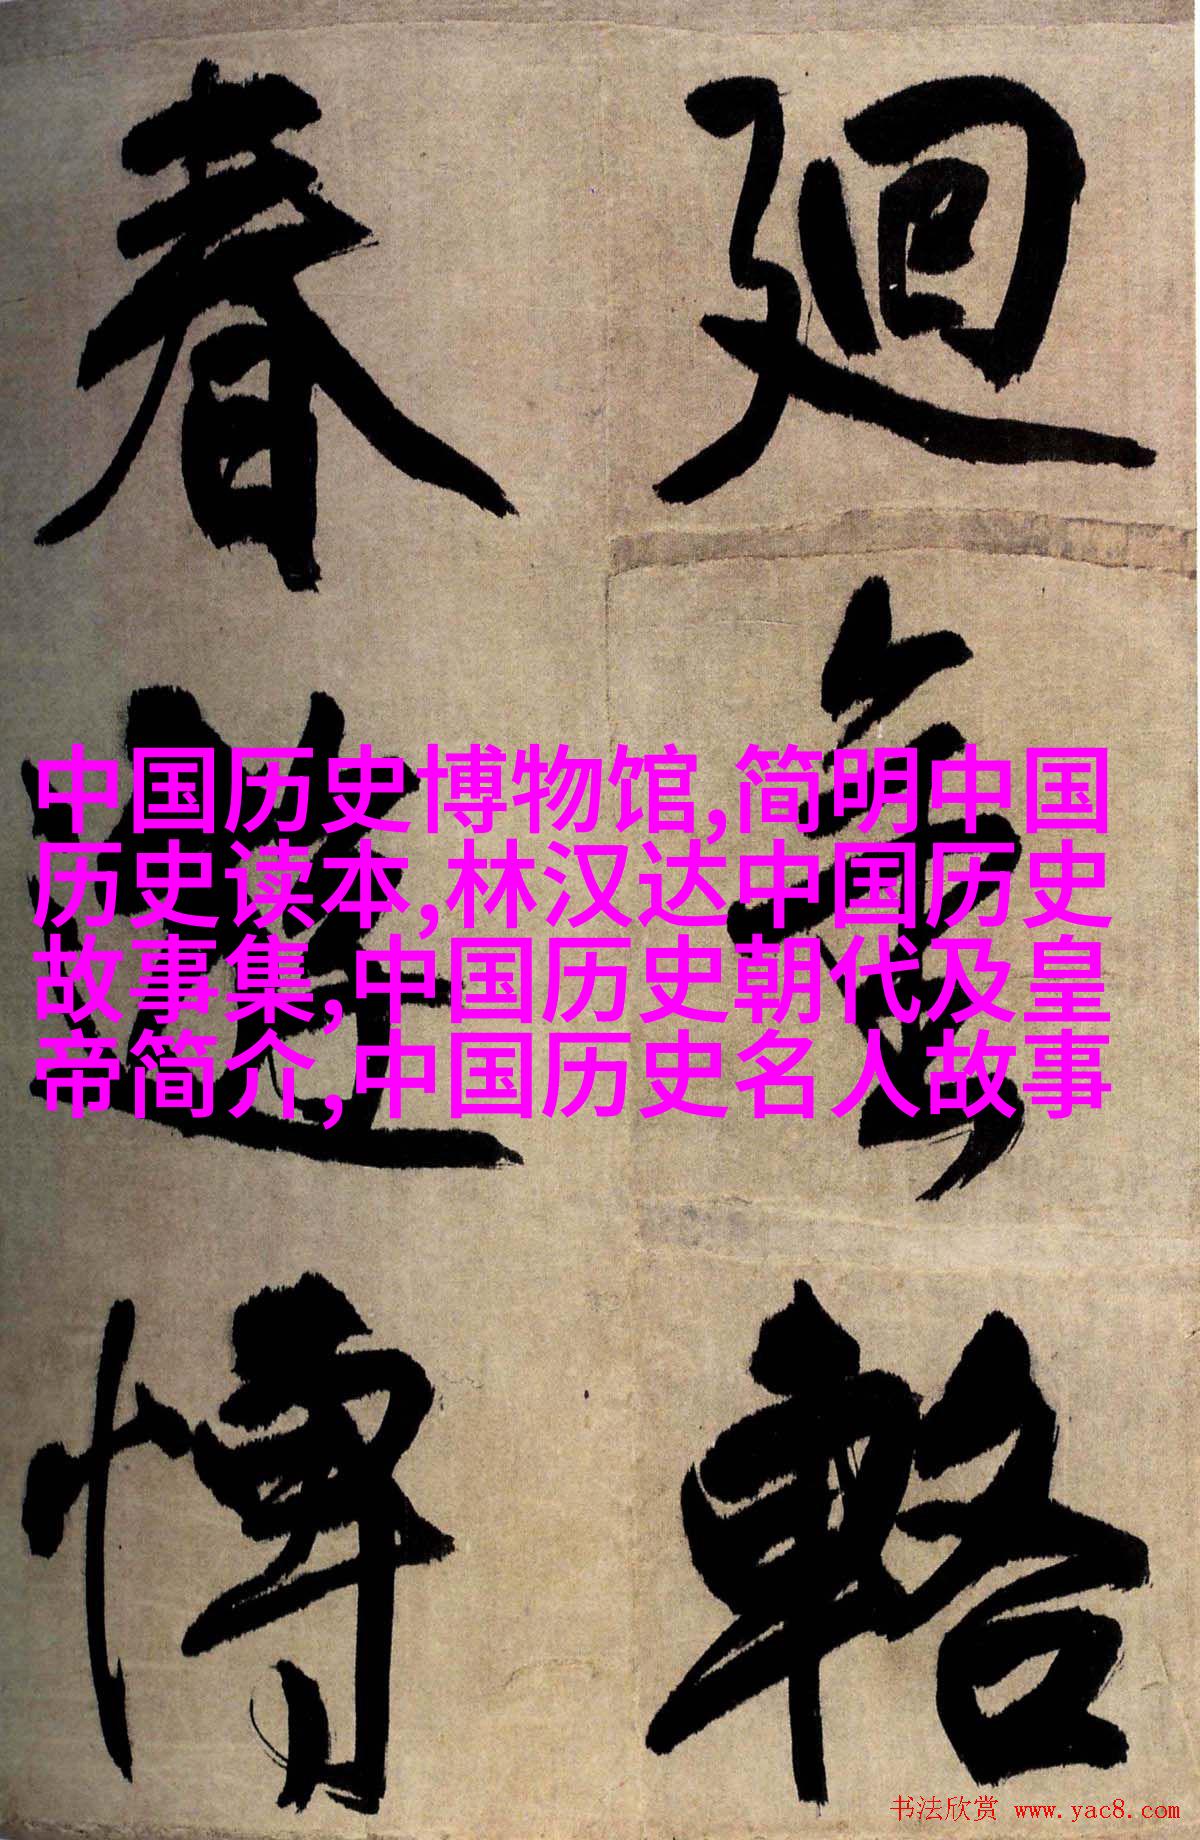 迴 輅
春 愽
中国历史博物馆,简明中国
历史读本,林汉达中国历史
故事集,中国历史朝代及皇
帝简介,中国历史名人故事
书法欣赏 www.yac8.com